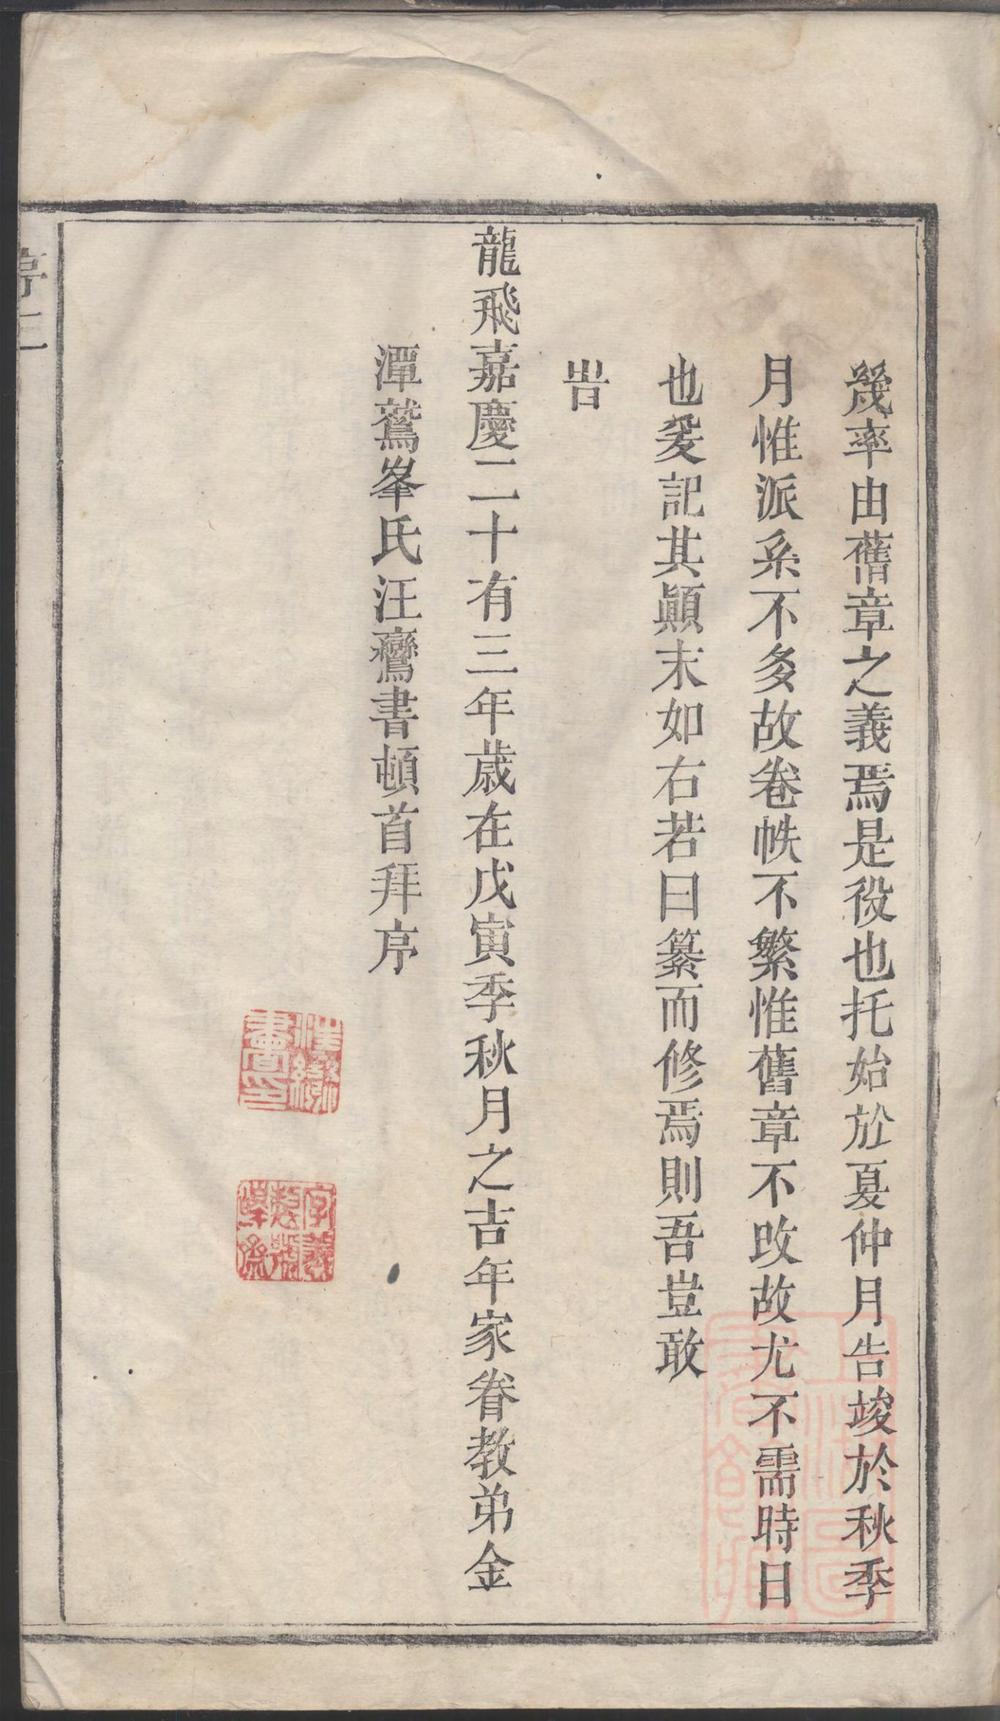 幾率由舊章之義焉是役也托始於夏仲月告竣於秋季
月惟派系不多故卷帙不繁惟舊章不改故尤不需時日
也爰記其顛末如右若曰纂而修焉則吾豈敢
旹
龍飛嘉慶二十有三年歲在戊寅季秋月之吉年家眷教弟金
潭鷲峯氏汪鸞書頓首拜序
序三